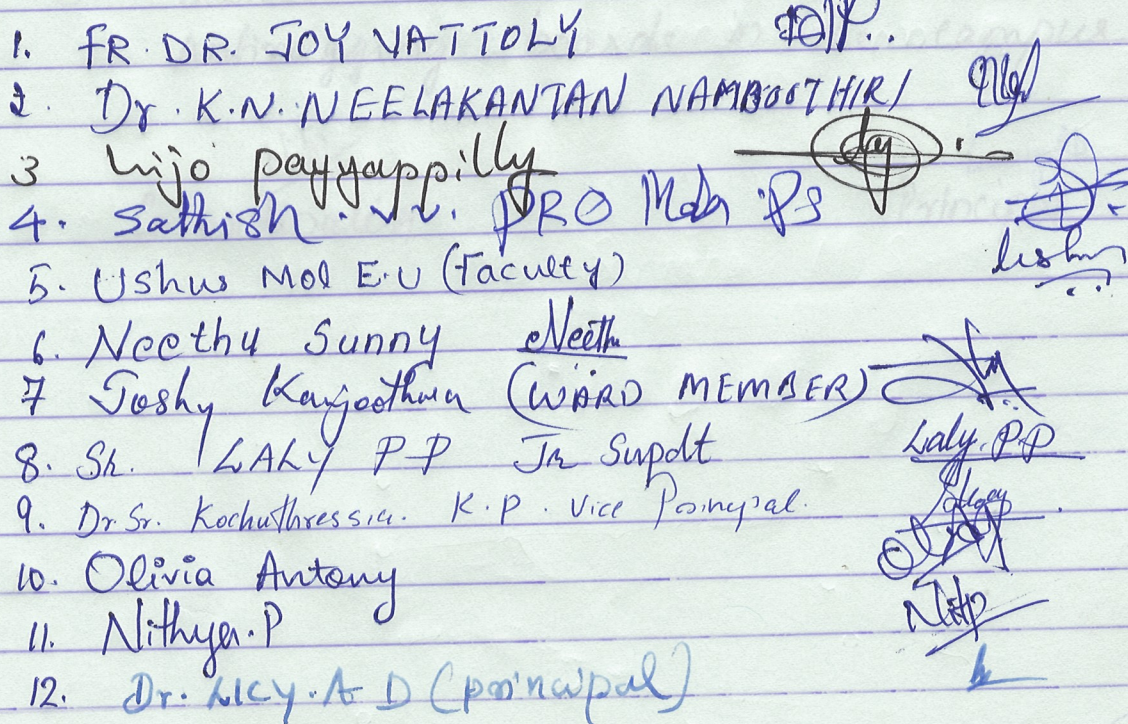 1. FR. DR. JOY VATTOLY
2. Dr. K.N. NEELAKANTAN NAMBOOTHIRI
3 Lijo payyappilly
4. Sathish . V.V. PRO Mala PS
5. Ushus Mol E.U (Faculty)
6. Neethu Sunny Neethu
7 Joshy Kanjoothara (WARD MEMBER)
8. Sh. LALY P P Jr Supdt Laly.P.P
9. Dr Sr. Kochuthressia. K.P. Vice Principal.
10. Olivia Antony
11. Nithya.P
12. Dr. LICY. A D (principal)